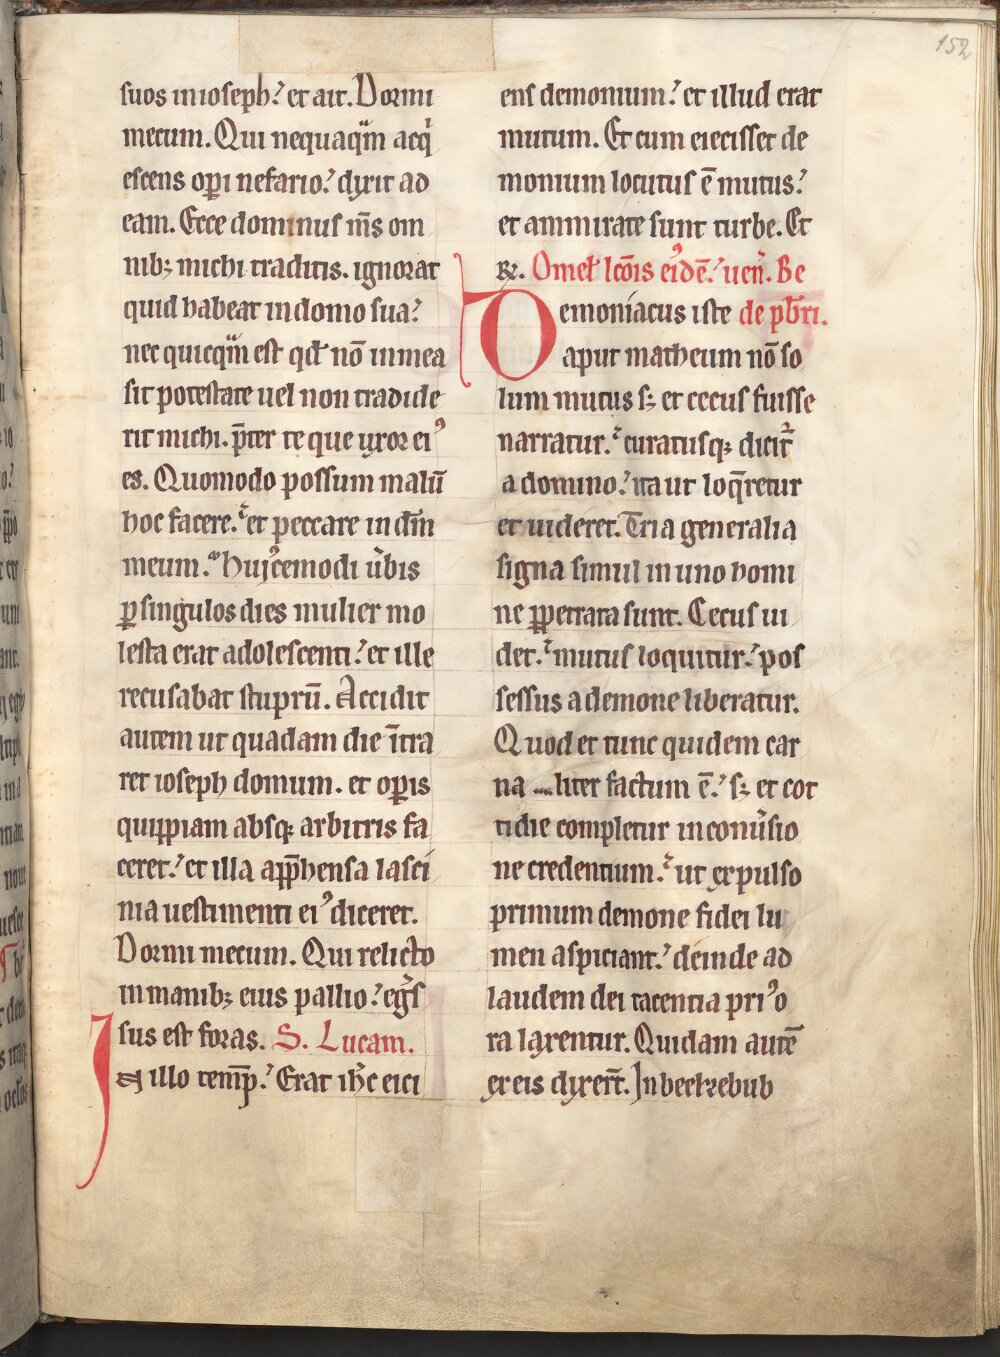 152
suos in ioseph? et ait. Dormi
mecum. Qui nequaqͣm acq̇
escens oꝑi nefario? dixit ad
eam. Ecce dominus m̄s om
nib; michi traditis. ignorat
quid habeat in domo sua?
nec quicqͣm est qd̄ nō in mea
sit potestate uel non tradide
rit michi. p̄ter te que uxor eiꝰ
es. Quomodo possum malū
hoc facere? et peccare in dm̄
meum. Hujꝰcemodi ùbis
ꝑ singulos dies mulier mo
lesta erat adolescenti? et ille
recusabat stuprū. Accidit
autem ut quadam die ītra
ret ioseph domum. et oꝑis
quippiam absq; arbitris fa
ceret? et illa app̄hensa lasci
nia uestimenti eiꝰ diceret.
Dormi mecum. Qui relicto
in manib; eius pallio? eg̃s
sus est foras. S. Lucam.
In illo temp̄? Erat ih̄c eici
ens demonium? et illud erat
mutum. Et cum eiecisset de
monium locutus ē mutus?
et ammirate sunt turbe. Et
R̄. Omel̄ lc̄ōis eiꝰdē? uen̄. Be
Demoniacus iste de pb̄ri.
aput matheum nō so
lum mutus s; et cecus fuisse
narratur? curatusq; dicit᷑
a domino? ita ut loq̄retur
et uideret. Tria generalia
signa simul in uno homi
ne ꝑpetrata sunt. Cecus ui
det? mutus loquitur? pos
sessus a demone liberatur.
Quod et tunc quidem car
na liter factum ē? s; et cot
tidie completur in conùsio
ne credentium? ut expulso
primum demone fidei lu
men aspiciant? deinde ad
laudem dei tacentia priꝰo
ra laxentur. Quidam autē
ex eis dixer̄t. In beelzebub